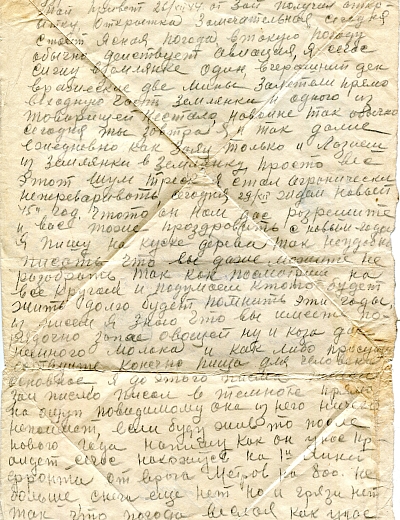 привет 26/XII 44 от Зои получил откр
ытку открытка замечательная сегодня
стоит ясная погода в такую погоду
обычно действует авиация я сейчас
сижу в землянке один, вчерашний ден
вражеские две мины залетели прямо
в входную часть землянки и одного из
товарищей нестало на войне так обычно
сегодня ты завтра я и так далее
ежедневно как только и лазием
из землянки в землянку просто все
этот шум треск я стал органически
непереваривать сегодня 29/XII ждем новый
45й год, что он нам даст разрешите
и вас тоже поздравить с новым годом
я пишу на куске дерева так неудобно
писать что вы даже можите не
разобрать. Так как посмотриш на
все кругом и подумаеш кто то будет
жить долго будет помнить эти годы
из писем я знаю что вы имеете по
рядочно запас овощей ну и коза даст
немного молока и как либо
конечно пища для человека
основное я до этого письма
Зои письмо писал в темноте прямо
на ощуп повидимому она из него ничего
непоймет, если буду жив то после
нового года напишу как он у нас пр
ойдет сейчас нахожусь на 1й линии
фронта от врага метров на 800. не
больше снега еще нет но и грязи нет
так что погода веселая как у нас